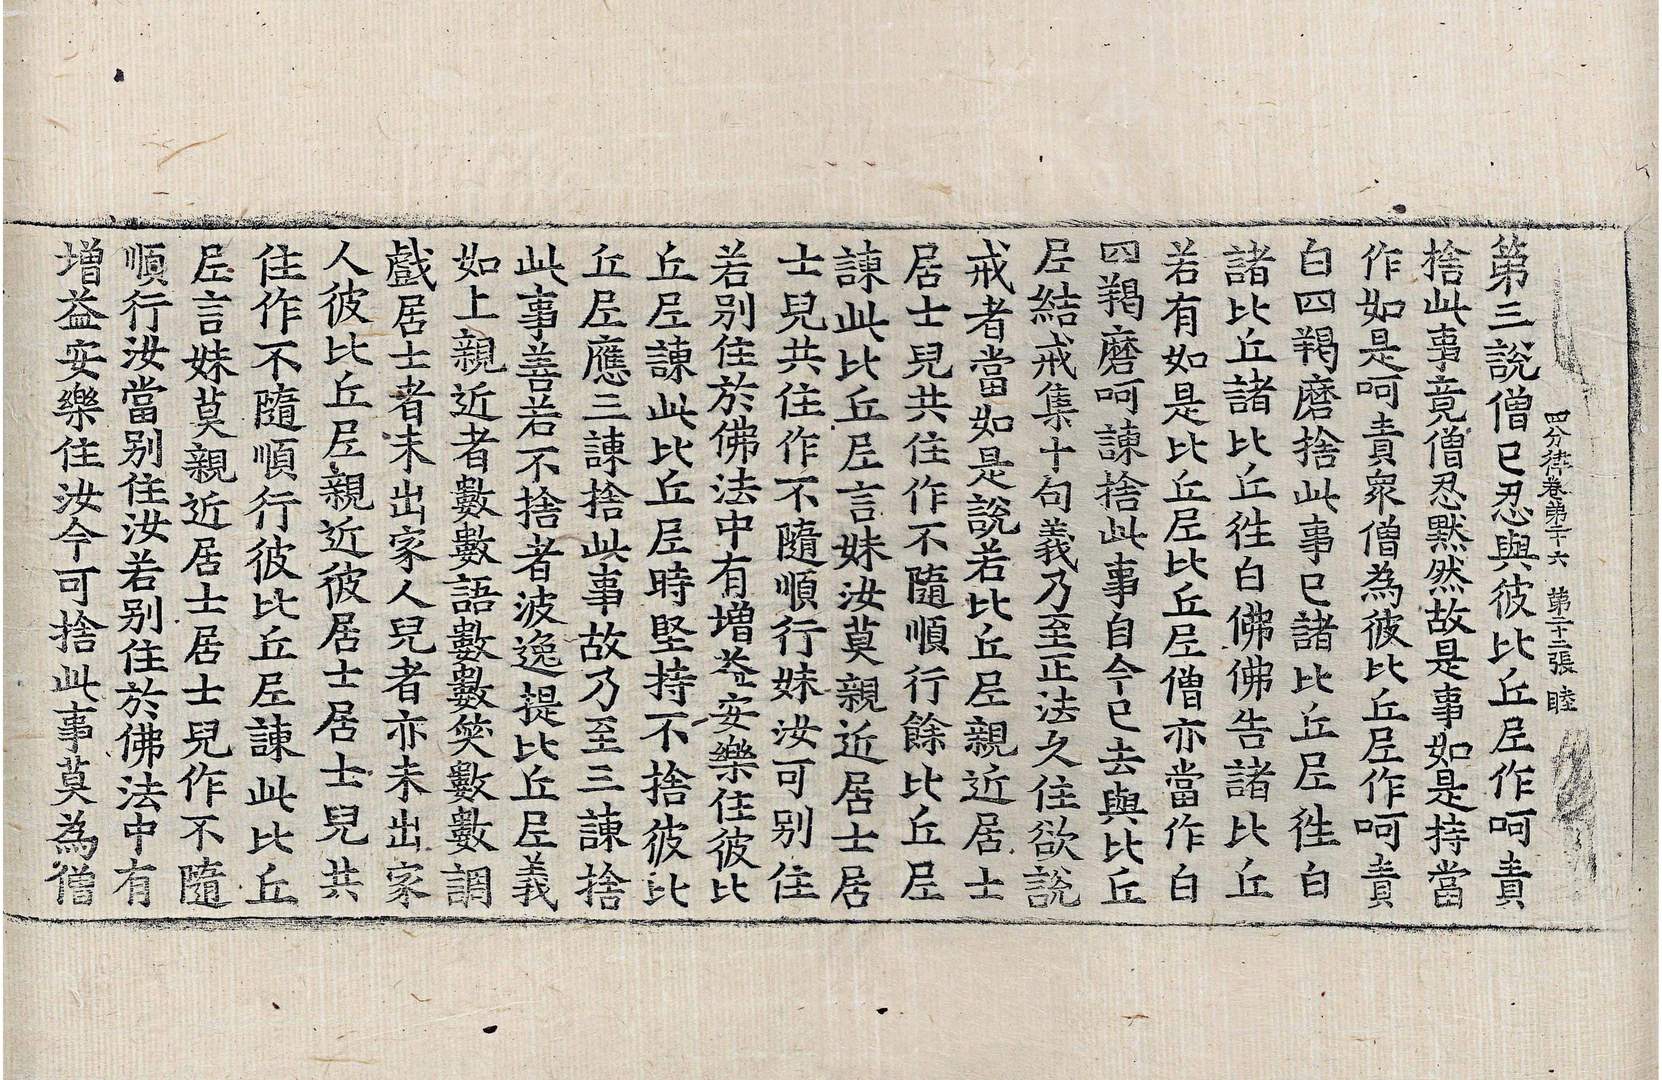 四分律卷第二十六　第二十三張　睦
第三說僧已忍與彼比丘尼作呵責
捨此事竟僧忍黙然故是事如是持當
作如是呵責衆僧為彼比丘尼作呵責
白四羯磨捨此事已諸比丘尼徃白
諸比丘諸比丘徃白佛佛告諸比丘
若有如是比丘尼比丘尼僧亦當作白
四羯磨呵諫捨此事自今已去與比丘
尼結戒集十句義乃至正法久住欲說
戒者當如是說若比丘尼親近居士
居士兒共住作不隨順行餘比丘尼
諫此比丘尼言妹汝莫親近居士居
士兒共住作不隨順行妹汝可別住
若別住於佛法中有增益安樂住彼比
丘尼諫此比丘尼時堅持不捨彼比
丘尼應三諫捨此事故乃至三諫捨
此事善若不捨者波逸提比丘尼義
如上親近者數數語數數笑數數調
戲居士者未出家人兒者亦未出家
人彼比丘尼親近彼居士居士兒共
住作不隨順行彼比丘尼諫此比丘
尼言妹莫親近居士居士兒作不隨
順行汝當別住汝若別住於佛法中有
增益安樂住汝今可捨此事莫為僧